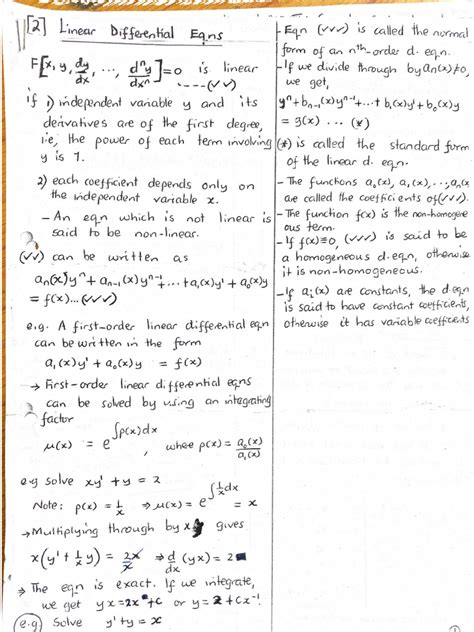 [2] Linear Differential Eqns
F[x, y, dy/dx, ..., dⁿy/dxⁿ] = 0 is linear
----(✓✓)
if 1) independent variable y and its
derivatives are of the first degree,
ie, the power of each term involving
y is 1.
2) each coefficient depends only on
the independent variable x.
- An eqn which is not linear is
said to be non-linear.
(✓✓) can be written as
aₙ(x)yⁿ + aₙ₋₁(x)yⁿ⁻¹ + ... + a₁(x)y' + a₀(x)y
= f(x)...(✓✓✓)
e.g. A first-order linear differential eqn
can be written in the form
a₁(x)y' + a₀(x)y = f(x)
→ First-order linear differential eqns
can be solved by using an integrating
factor
μ(x) = e^∫p(x)dx, where p(x) = a₀(x)/a₁(x)
e.g solve xy' + y = 2
Note: p(x) = 1/x ⇒ μ(x) = e^∫1/x dx = x
→ Multiplying through by x gives
x(y' + 1/x y) = 2x/x ⇒ d/dx (yx) = 2
⇒ The eqn is exact. If we integrate,
we get yx = 2x + C or y = 2 + Cx⁻¹
(e.g) Solve y' + y = x
- Eqn (✓✓✓) is called the normal
form of an nᵗʰ-order d. eqn.
- If we divide through by aₙ(x) ≠ 0,
we get,
yⁿ + bₙ₋₁(x)yⁿ⁻¹ + ... + b₁(x)y' + b₀(x)y
= g(x) ... (*)
(*) is called the standard form
of the linear d. eqn.
- The functions a₀(x), a₁(x), ..., aₙ(x)
are called the coefficients of (✓✓✓).
- The function f(x) is the non-homogene
ous term.
- If f(x) ≡ 0, (✓✓✓) is said to be
a homogeneous d. eqn, otherwise
it is non-homogeneous.
- If aᵢ(x) are constants, the d. eqn
is said to have constant coefficients,
otherwise it has variable coefficients